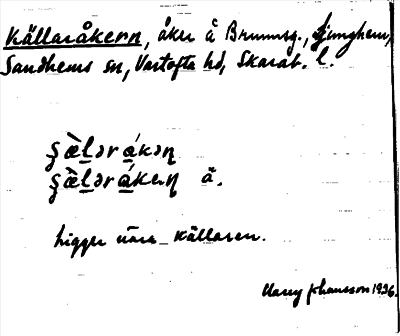 Källaråkern, åker å Brunnsg., Ljunghem,
Sandhems sn, Vartofta hd, Skarab. l.
ʂæ̀lər ákəɳ
ʂæ̀lər ákeɳ ä.
ligger nära källaren.
Harry Johansson 1936.